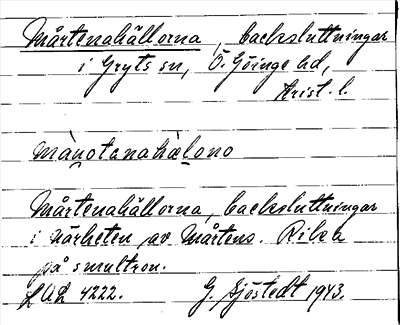 Mårtenahällorna, backsluttningar
i Gryts sn, Ö. Göinge hd,
Krist. l.
mànotanahàlono
Mårtenahällorna, backsluttningar
i närheten av Mårtens. Rika
på smultron.
LUL 4222. G. Sjöstedt 1943.